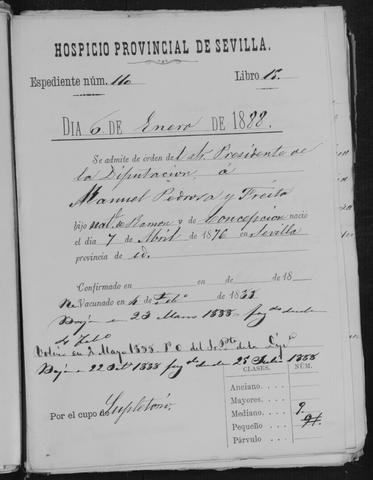 HOSPICIO PROVINCIAL DE SEVILLA.
Expediente núm. 110 Libro 15.
DIA 6 DE Enero DE 1888.
Se admite de orden del Sr. Presidente de
la Diputacion á
Manuel Pedrosa y
hijo nat. de Ramon y de Concepcion nacio
el dia 7 de Abril de 1876 en Sevilla
provincia de id.
Confirmado en en de de 18
Re Vacunado en 4 de Feb.º 1888
Baja en 23 Marzo 1888 desde
4 Feb.º
Volvio en 2 Mayo 1888 P. O. del de la
Baja 22 1888 desde 25 Julio 1888
CLASES.
Anciano.
Mayores.
Mediano. 9.
Pequeño.
Párvulo
Por el cupo de Supletorio.